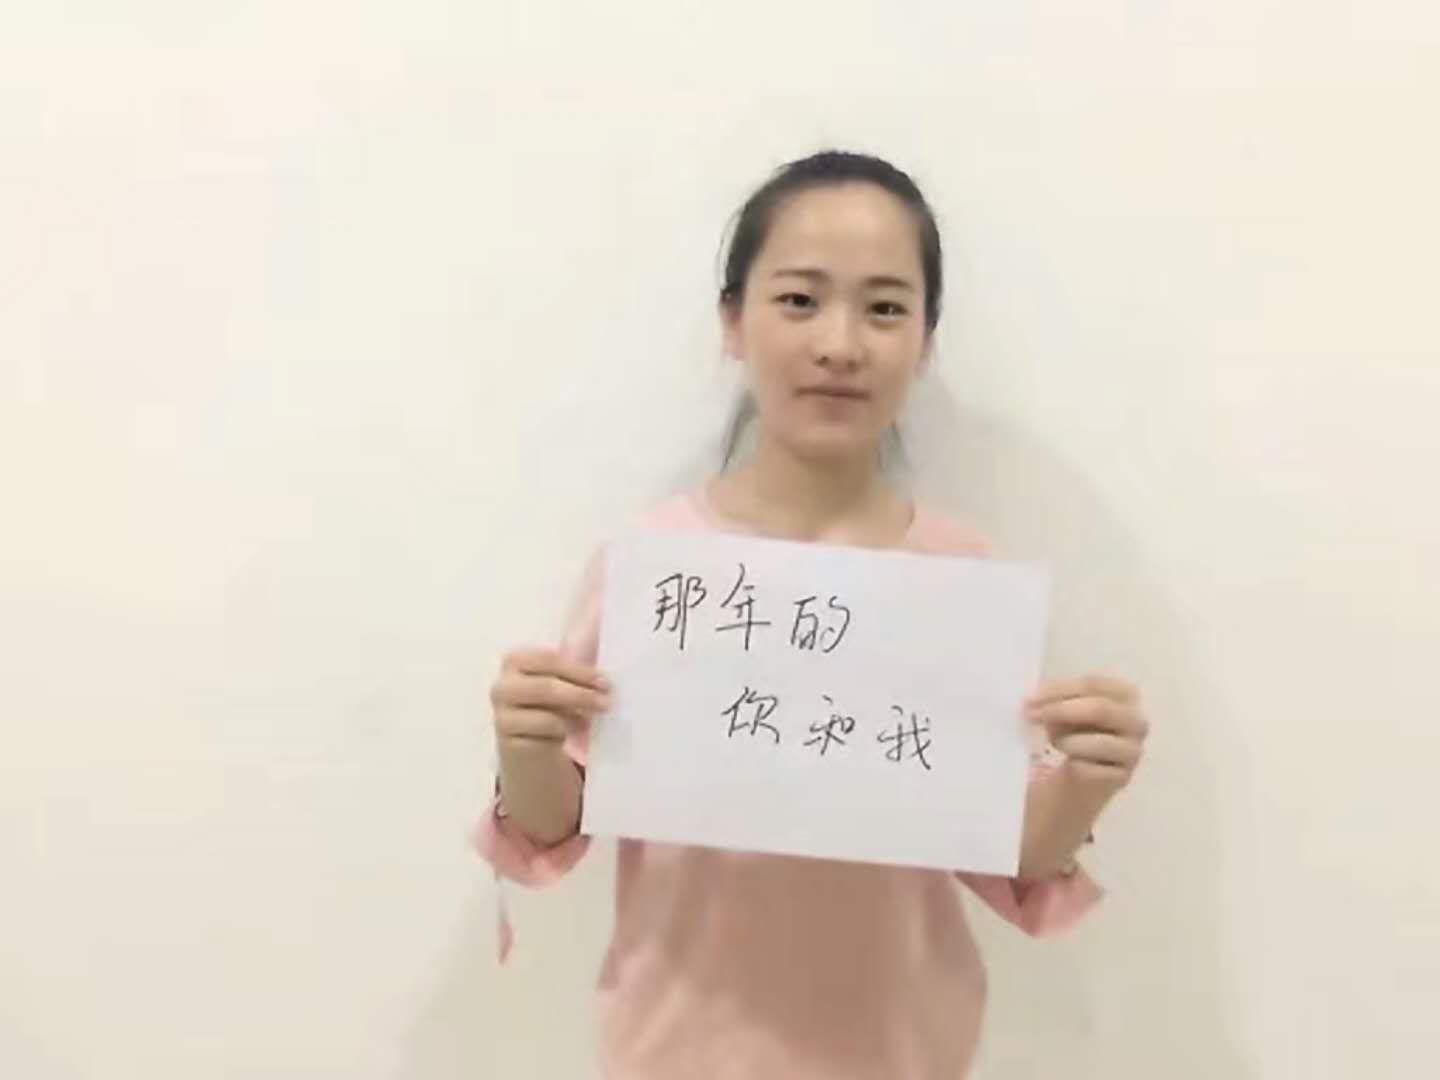 那年的
你和我